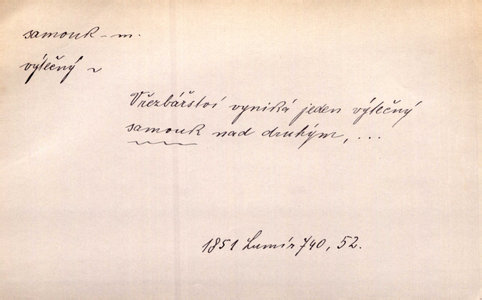 samouk - m.
výtečný ~
Vřezbářství vyniká jeden výtečný
samouk nad druhým, ...
1851 Lumír 740, 52.